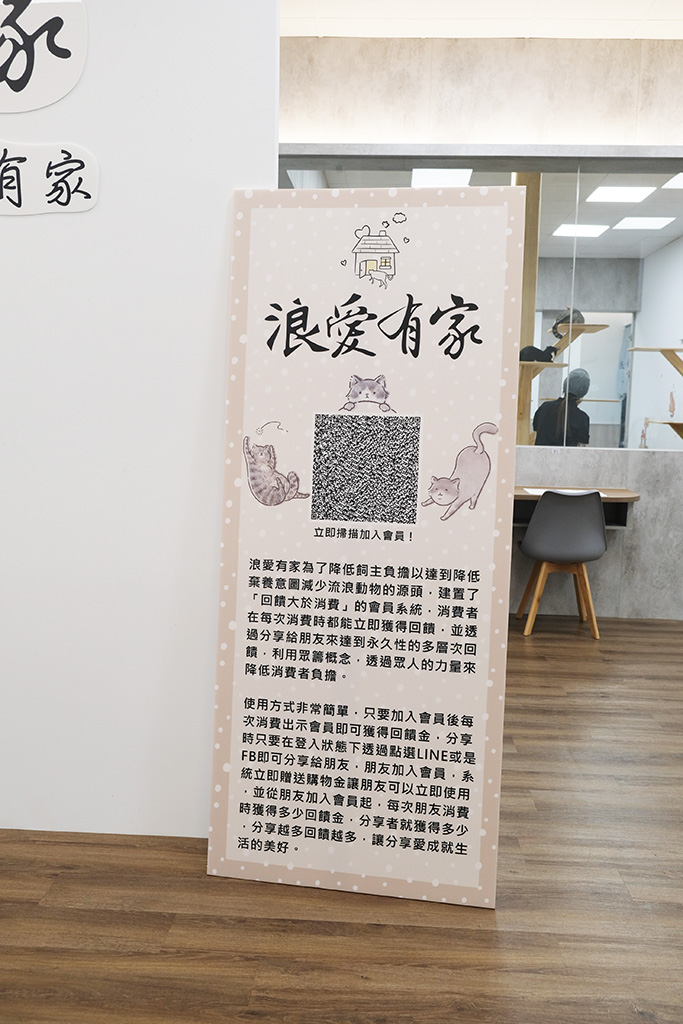 家
有家
浪愛有家
立即掃描加入會員！
浪愛有家為了降低飼主負擔以達到降低
棄養意圖減少流浪動物的源頭，建置了
「回饋大於消費」的會員系統，消費者
在每次消費時都能立即獲得回饋，並透
過分享給朋友來達到永久性的多層次回
饋，利用眾籌概念，透過眾人的力量來
降低消費者負擔。
使用方式非常簡單，只要加入會員後每
次消費出示會員即可獲得回饋金，分享
時只要在登入狀態下透過點選LINE或是
FB即可分享給朋友，朋友加入會員，系
統立即贈送購物金讓朋友可以立即使用
，並從朋友加入會員起，每次朋友消費
時獲得多少回饋金，分享者就獲得多少
，分享越多回饋越多，讓分享愛成就生
活的美好。